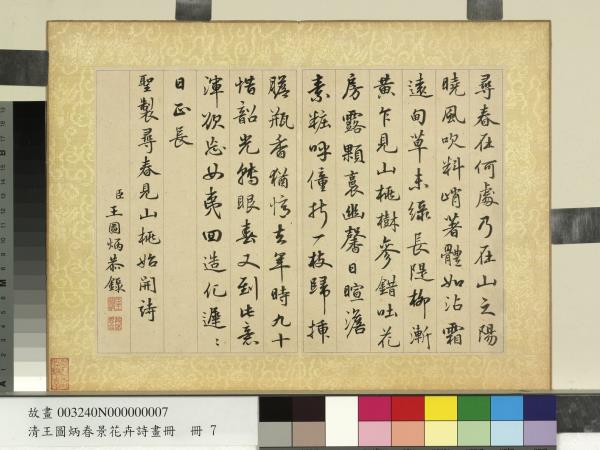 尋春在何處乃在山之陽
曉風吹料峭著體如沾霜
遠甸草未綠長隄柳漸
黃乍見山桃樹參錯吐花
房露顆裛幽馨日暄澹
素粧呼僮折一枝歸揷
膽瓶香猶憶去年時九十
惜韶光轉眼春又到此意
渾欲忘如夷回造化遲〻
日正長
聖製尋春見山桃始開詩
臣王圖炳恭錄
故畫 003240N000000007
清王圖炳春景花卉詩畫冊 冊 7